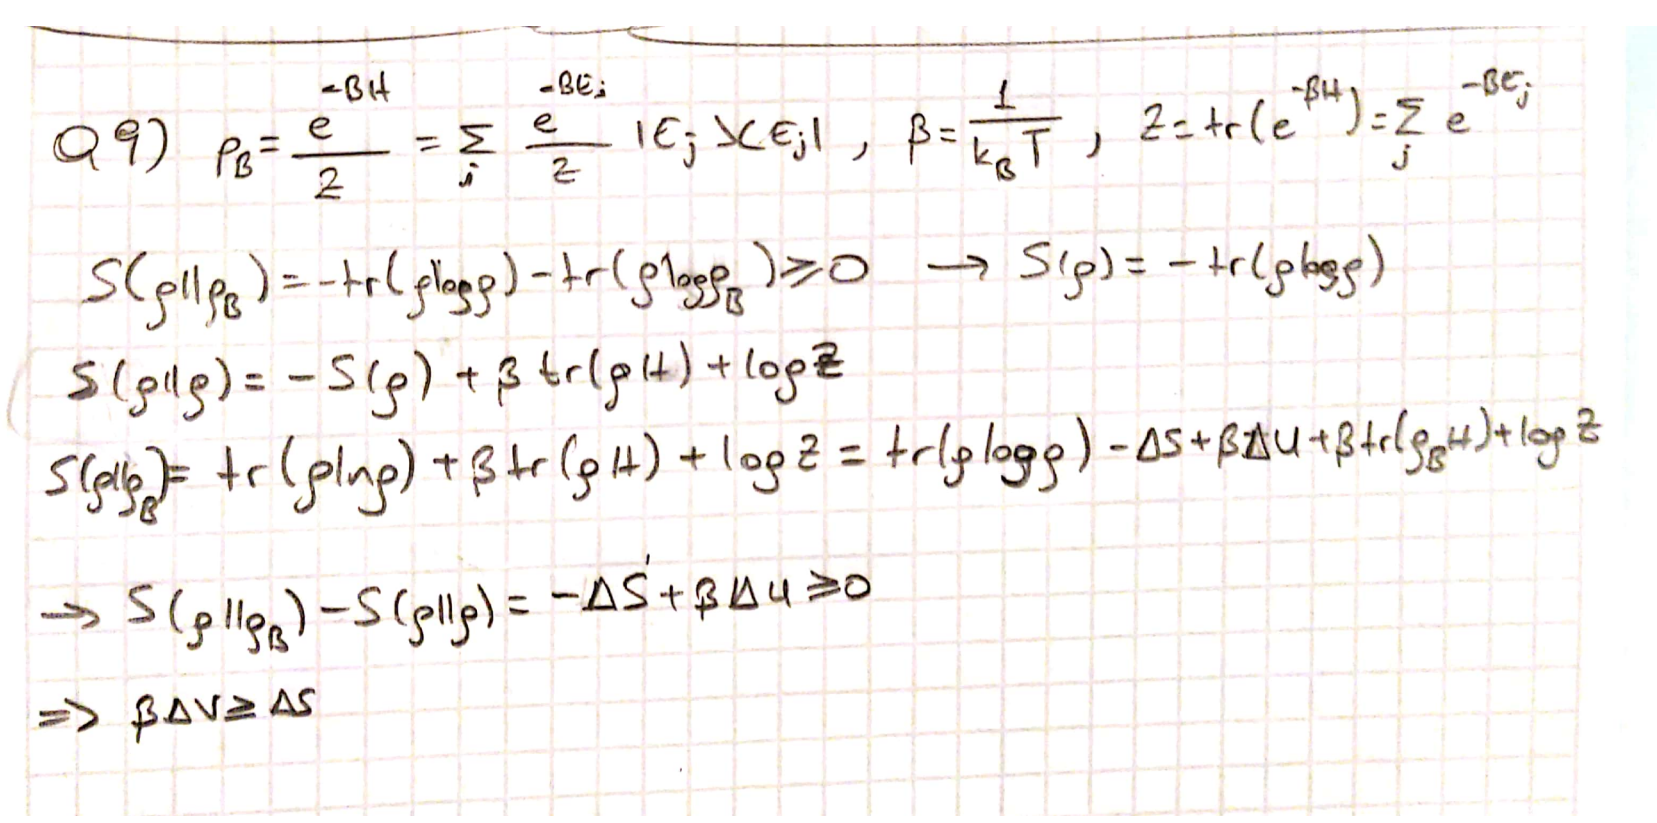 Q9) ρ_B = e^{-βH} / Z = Σ_j e^{-βE_j} / Z |E_j⟩⟨E_j| , β = 1 / k_B T , Z = tr(e^{-βH}) = Σ_j e^{-βE_j}
S(ρ||ρ_B) = -tr(ρlogρ) - tr(ρlogρ_B) ≥ 0 → S(ρ) = -tr(ρlogρ)
S(ρ||ρ) = -S(ρ) + β tr(ρH) + logZ
S(ρ||ρ_B) = tr(ρlnρ) + β tr(ρH) + logZ = tr(ρlogρ) - ΔS + βΔU + βtr(ρ_B H) + logZ
→ S(ρ||ρ_B) - S(ρ||ρ) = -ΔS + βΔU ≥ 0
=> βΔU ≥ ΔS